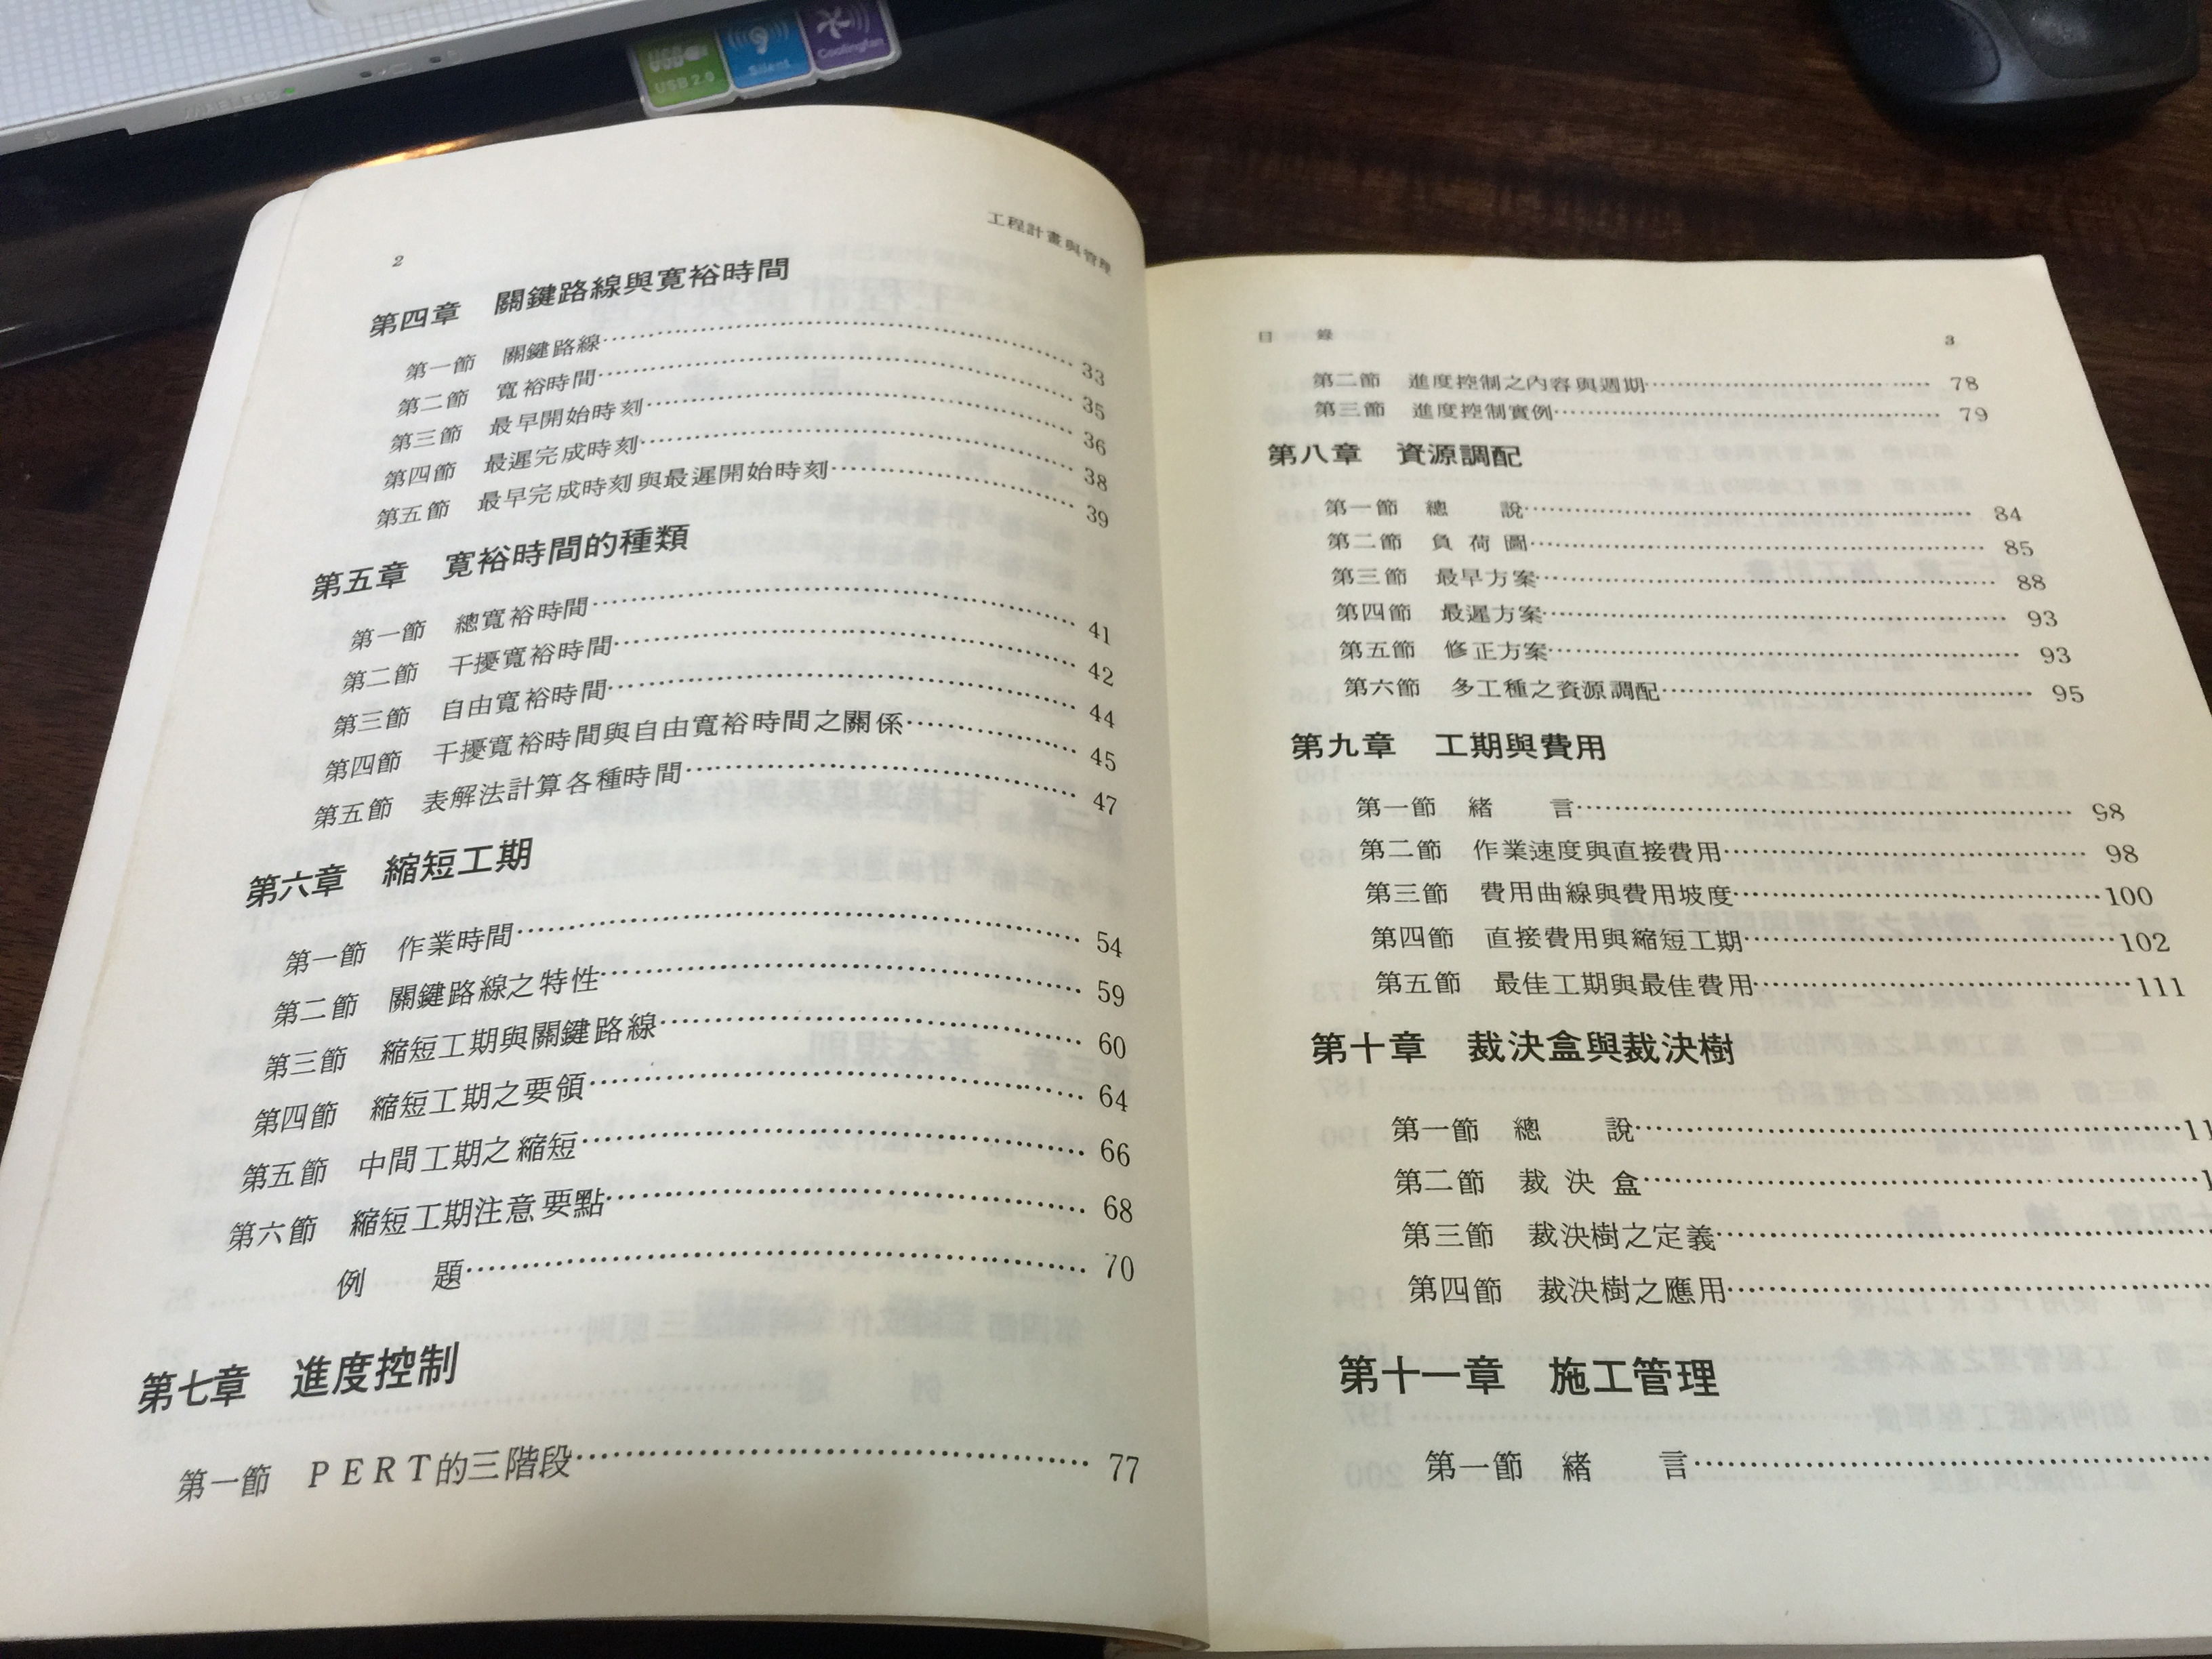 USB 2.0
Silent
Coolingfan
2
工程計畫與管理
第四章 關鍵路線與寬裕時間
第一節 關鍵路線 33
第二節 寬裕時間 35
第三節 最早開始時刻 36
第四節 最遲完成時刻 38
第五節 最早完成時刻與最遲開始時刻 39
第五章 寬裕時間的種類
第一節 總寬裕時間 41
第二節 干擾寬裕時間 42
第三節 自由寬裕時間 44
第四節 干擾寬裕時間與自由寬裕時間之關係 45
第五節 表解法計算各種時間 47
第六章 縮短工期
第一節 作業時間 54
第二節 關鍵路線之特性 59
第三節 縮短工期與關鍵路線 60
第四節 縮短工期之要領 64
第五節 中間工期之縮短 66
第六節 縮短工期注意要點 68
例 題 70
第七章 進度控制
第一節 PERT的三階段 77
目 錄
3
第二節 進度控制之內容與週期 78
第三節 進度控制實例 79
第八章 資源調配
第一節 總 說 84
第二節 負荷圖 85
第三節 最早方案 88
第四節 最遲方案 93
第五節 修正方案 93
第六節 多工種之資源調配 95
第九章 工期與費用
第一節 緒 言 98
第二節 作業速度與直接費用 98
第三節 費用曲線與費用坡度 100
第四節 直接費用與縮短工期 102
第五節 最佳工期與最佳費用 111
第十章 裁決盒與裁決樹
第一節 總 說
第二節 裁決盒
第三節 裁決樹之定義
第四節 裁決樹之應用
第十一章 施工管理
第一節 緒 言